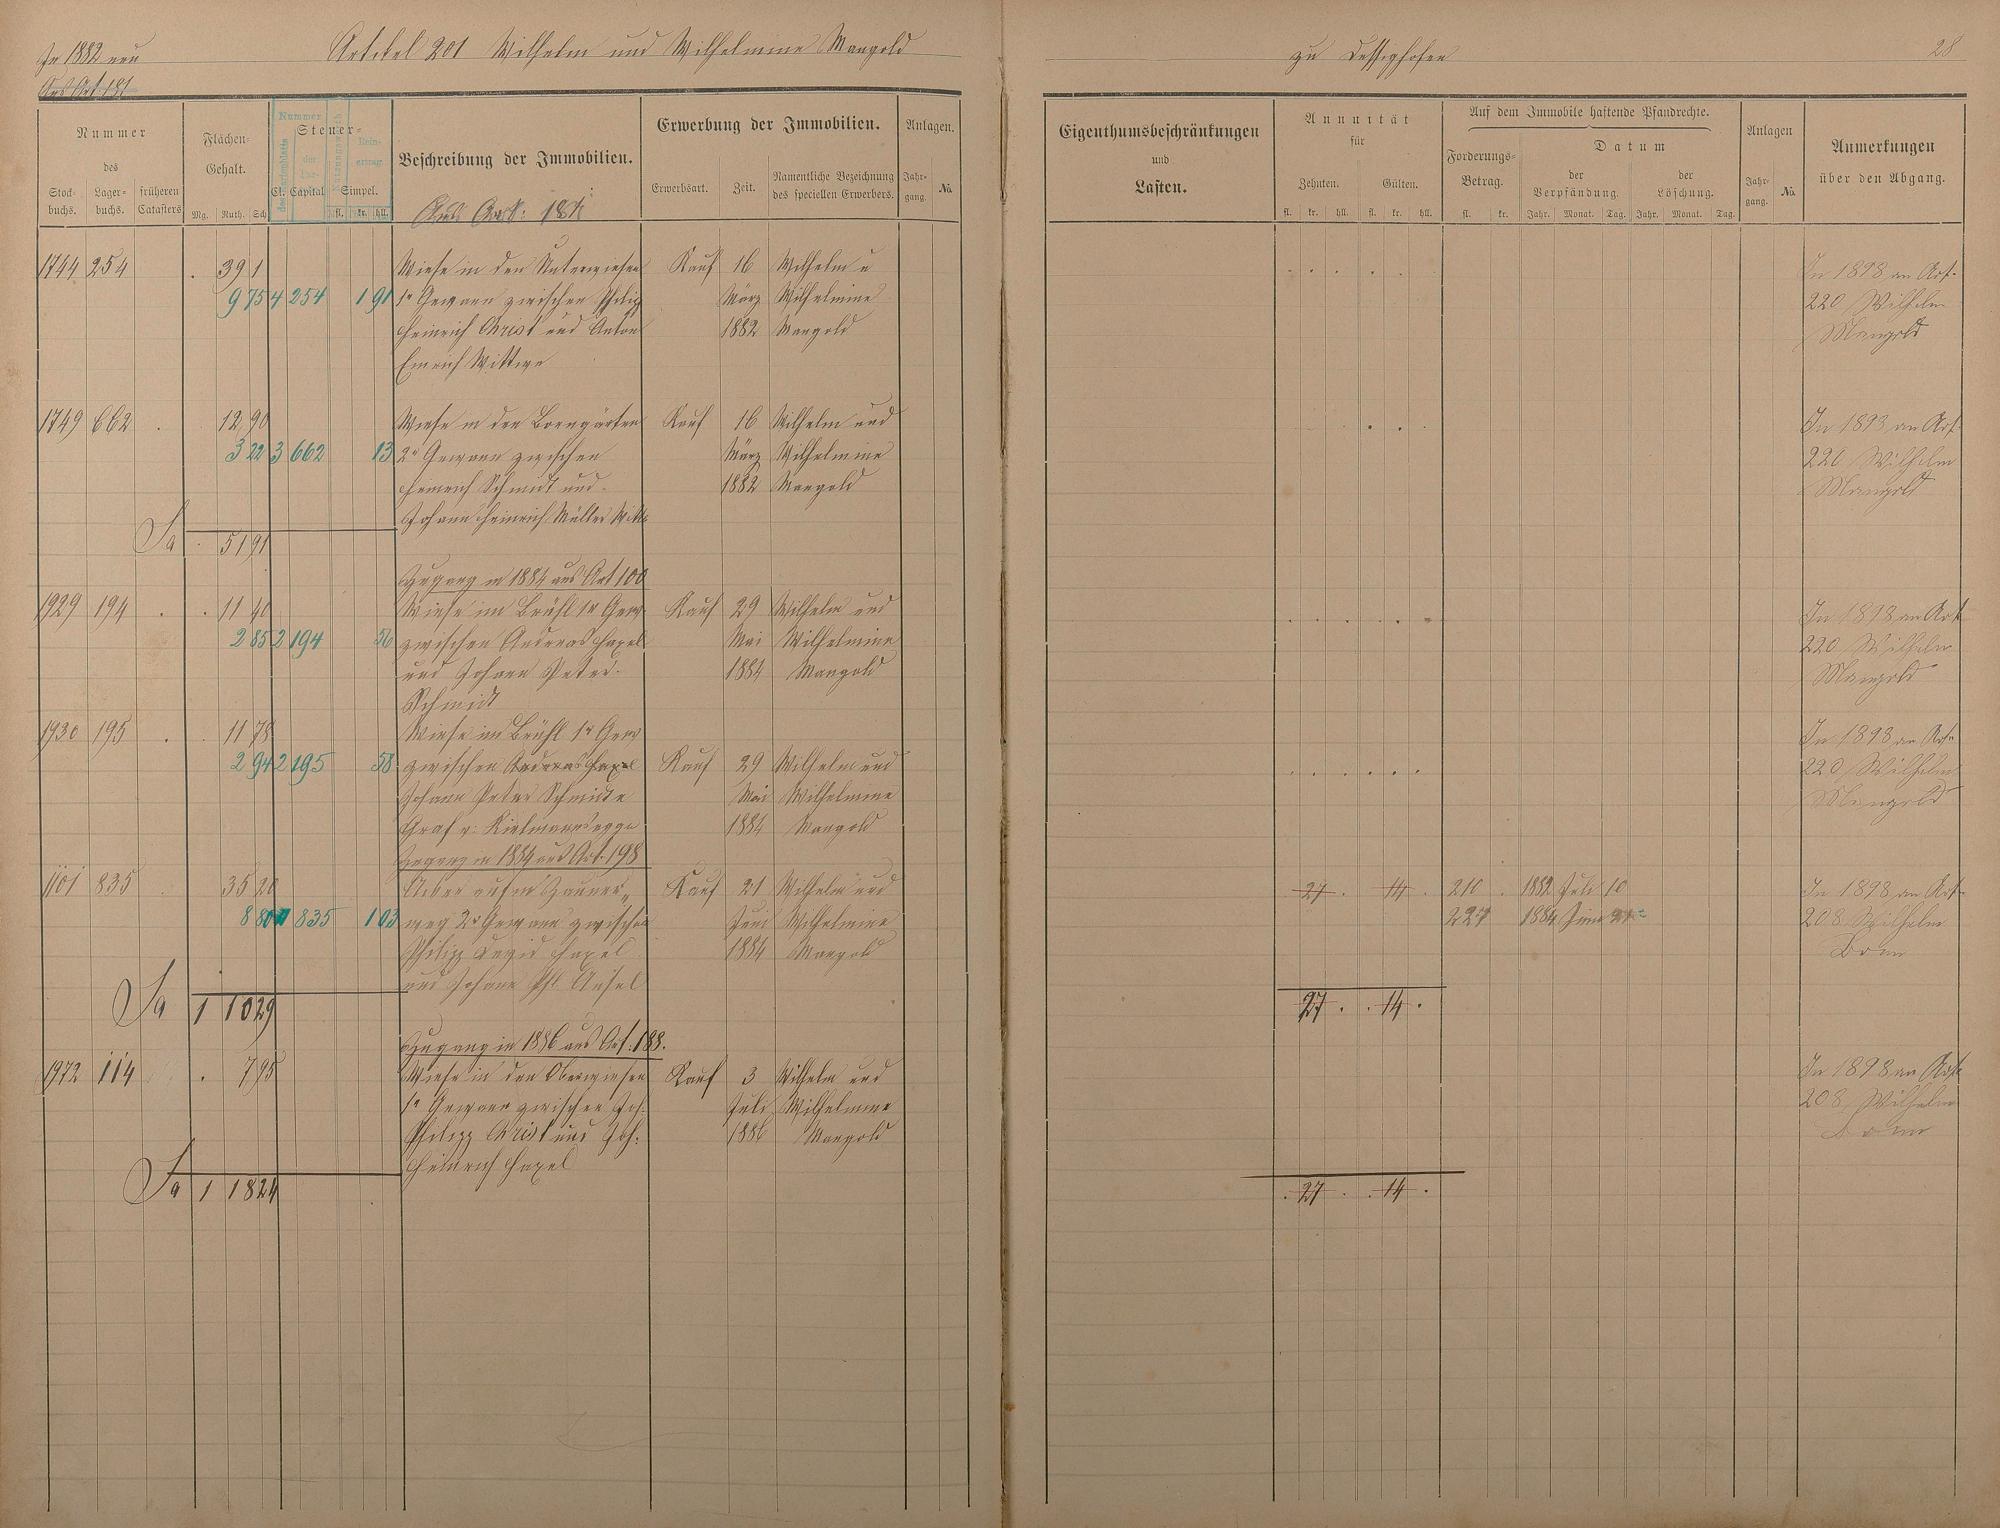 In 1882 neu
Artikel 201 Wilhelm und Wilhelmine Mangold
Aus Art. 181
zu Dessighofen
28
Nummer
des
Stock-
buchs.
Lager-
buchs.
früheren
Catasters
Flächen-
Gehalt.
Mg. Ruth. Sch.
Nummer
Steuer-
Cl. Capital
Simpel.
fl. kr. hll.
Beschreibung der Immobilien.
Erwerbung der Immobilien.
Erwerbsart.
Zeit.
Namentliche Bezeichnung
des speciellen Erwerbers.
Anlagen.
Jahr-
gang.
No.
Eigenthumsbeschränkungen
und
Lasten.
Annuität
für
Zehnten. Gülten.
fl. kr. hll. fl. kr. hll.
Auf dem Immobile haftende Pfandrechte.
Forderungs-
Betrag.
fl. kr.
Datum
der
Verpfändung.
Jahr. Monat. Tag.
der
Löschung.
Jahr. Monat. Tag.
Anlagen
Jahr-
gang.
No.
Anmerkungen
über den Abgang.
Aus Art: 181
1744 254 . 39 1 Wiese in den Unterwiesen Kauf 16 Wilhelm u In 1898 an Art.
9 75 4 254 1 91 1r Gewann zwischen Philipp März Wilhelmine 220 Wilhelm
Heinrich Christ und Anton 1882 Mangold Mangold
Emrich Wittwe
1749 662 . 12 90 Wiese in den Borngärten Kauf 16 Wilhelm und In 1893 an Art.
3 22 3 662 13 2r Gewann zwischen März Wilhelmine 220 Wilhelm
Heinrich Schmidt und 1882 Mangold Mangold
Johann Heinrich Müller Wittw
Sa . 51 91
Zugang in 1884 aus Art 100
1929 194 . . 11 40 Wiese im Brühl 1r Gew. Kauf 29 Wilhelm und In 1898 an Art
2 85 2 194 56 zwischen Andreas Hasel Mai Wilhelmine 220 Wilhelm
und Johann Peter 1884 Mangold Mangold
Schmidt
1930 195 . . 11 78 Wiese im Brühl 1r Gew In 1898 an Art.
2 94 2 195 58 zwischen Andreas Hasel Kauf 29 Wilhelm und 220 Wilhelm
Johann Peter Schmidt u Mai Wilhelmine Mangold
Graf v. Kielmannsegge 1884 Mangold
Zugang in 1884 aus Art. 198
1101 835 35 20 Acker auf'm Zauner„ Kauf 21 Wilhelm und 27 . 14 . 210 . 1882 Juli 10 In 1898 an Art.
8 80 835 1 03 weg 2r Gewann zwischen Juni Wilhelmine 227 1884 Juni 21 208 Wilhelm
Philipp Hasel 1884 Mangold Bonn
und Johann Phl. Ansel
Sa 1 10 29 27 . . 14 .
Zugang in 1886 aus Art. 188.
1972 114 . 7 95 Wiese in den Oberwiesen Kauf 3 Wilhelm und In 1898 an Art.
1r Gewann zwischen Joh. Juli Wilhelmine 208 Wilhelm
Philipp Christ und Joh. 1886 Mangold Bonn
Heinrich Hasel
Sa 1 18 24 . 27 . . 14 .